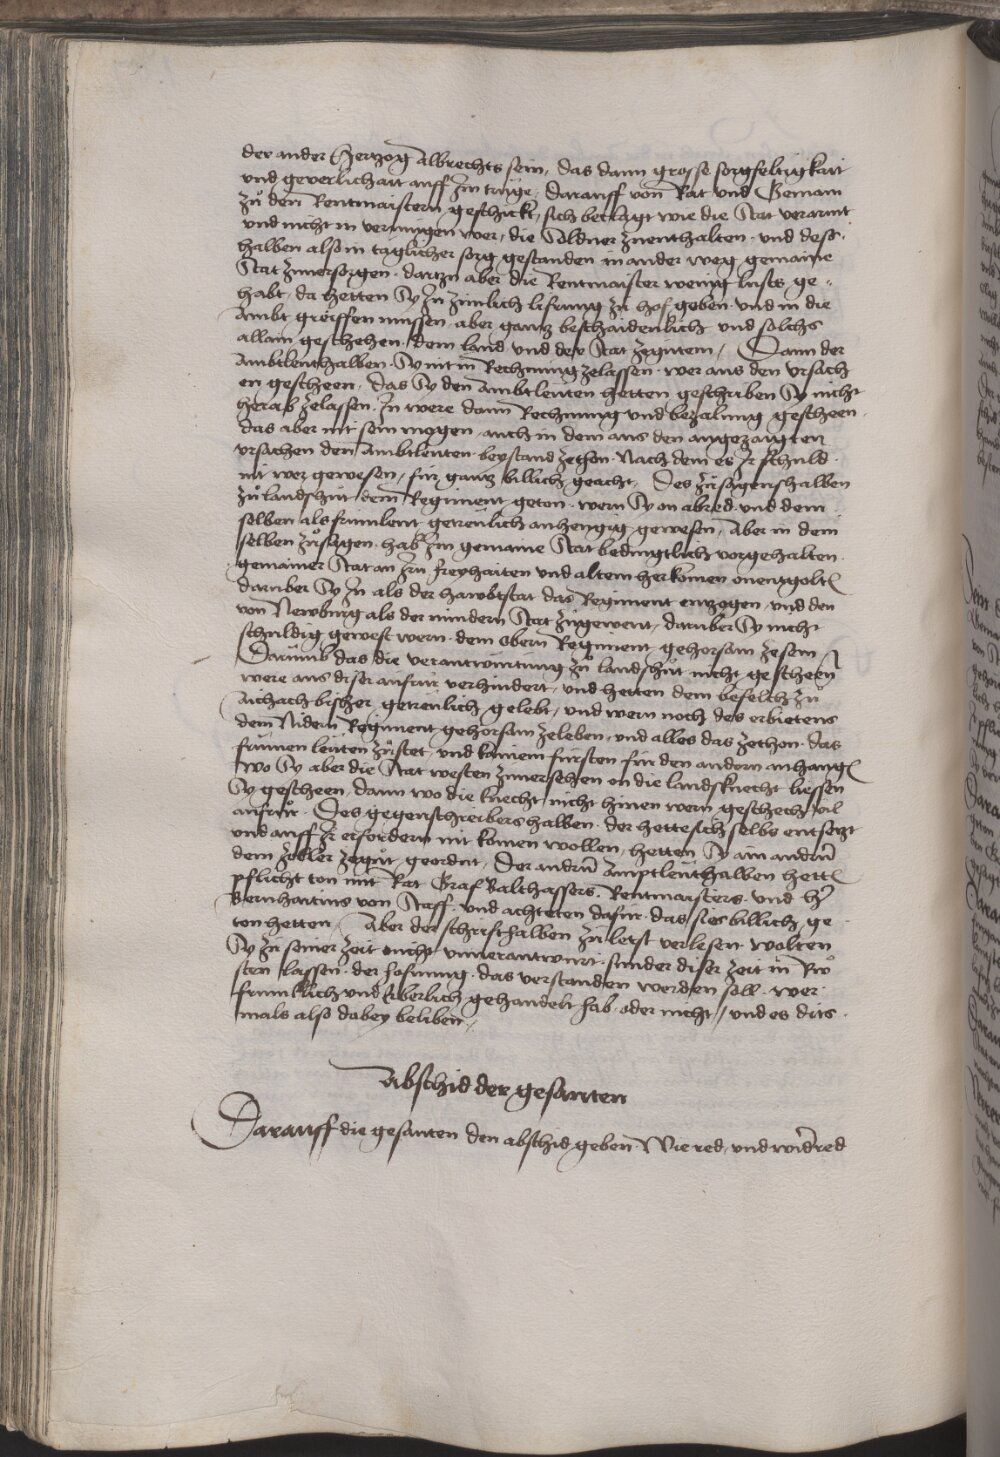 der ander Hertzog Albrechts sein, das dann grosse sorgfeltigkait
und geverlichait auff Im trüge. Darauff von Rat und Gemain
zů den Rentmaistern geschickt, sich beclagt wie die Stat verarmt
und nicht in vermugen wer, die Söldner zuenthalten. und dess-
halben also in täglicher sorg gestanden in ander weg gemaine
Stat zuuersorgen. dartzu aber die Rentmaister wenig lusts ge-
habt, da hetten Sy In zimlich lifrung zu hof geben. und in die
Ambt greiffen mussen, aber gantz beschaidenlich und solchs
allain geschehen, dem land und der Stat zegutem, Dann der
Ambtleuthalben Sy nit in Rechnung zelassen. wer aus den ursach
en gescheen, das Sy den Ambtleuten hetten geschriben Sy nicht
herab zelassen, In were dann Rechnung und bezalung gescheen.
das aber nit sein mogen, auch in dem aus den angezaigten
ursachen den Ambtleuten beystand zethon. Nach dem es Ir schuld
nit wer gewesen, für gantz billich geacht, Des zůsagenshalben
zů landshut dem Regiment geton. wern Sy on abred. und dem
selben als frumleut getreulich anhengig gewesen, Aber in dem
selben zůsagen. hab In gemaine Stat bedingtlich vorgehalten
gemainer Stat an Irn freyhaiten und altem herkomen onentgolten
daruber Sy In als der hawbtstat das Regiment entzogen, und den
von Newburg als der mindern Stat zugewent, daruber Sy nicht
schuldig gewest wern. dem obern Regiment gehorsam zesein
Darumb das die verantwurtung zů landshůt nicht gescheen
were aus diser aufrur verhindert, und hetten dem befelch zu
Aichach bisher getreulich gelebt, und wern noch des erbietens
dem Nidern Regiment gehorsam zeleben, und alles das zethon. das
frumen leuten zůstet, und kainem fursten fur den andern anhang
wo Sy aber die Stat westen zuuersehen on die landsknecht liessen
Sy gescheen, dann wo die knecht nicht hinen wern geschech vil
aufrur. Des gegenschreibers halben. der hette sich selbs entsetzt
und auff Ir erfordern nit komen wollen, hetten Sy ain andern
dem zoller zegut geordnt, Der andern Amptleuthalben hetten
pflicht ton mit Rat Graf Balthassers. Rentmaisters. und her
Bernhartins von Stauff. und achteten dafur. das sies billich ge
ton hetten, Aber der schrifthalben zu letst verlesen. wolten
Sy zu seiner zeit nicht vnuerantwurt. sunder diser zeit in Rw
sten lassen. der hofnung. das verstanden werden soll. wer
frumklich und Erberlich gehandelt hab. oder nicht, und es dits
mals also dabey beliben.
Abschid der gesanten
Darauff die gesanten den abschid geben. Wie red, und widerred